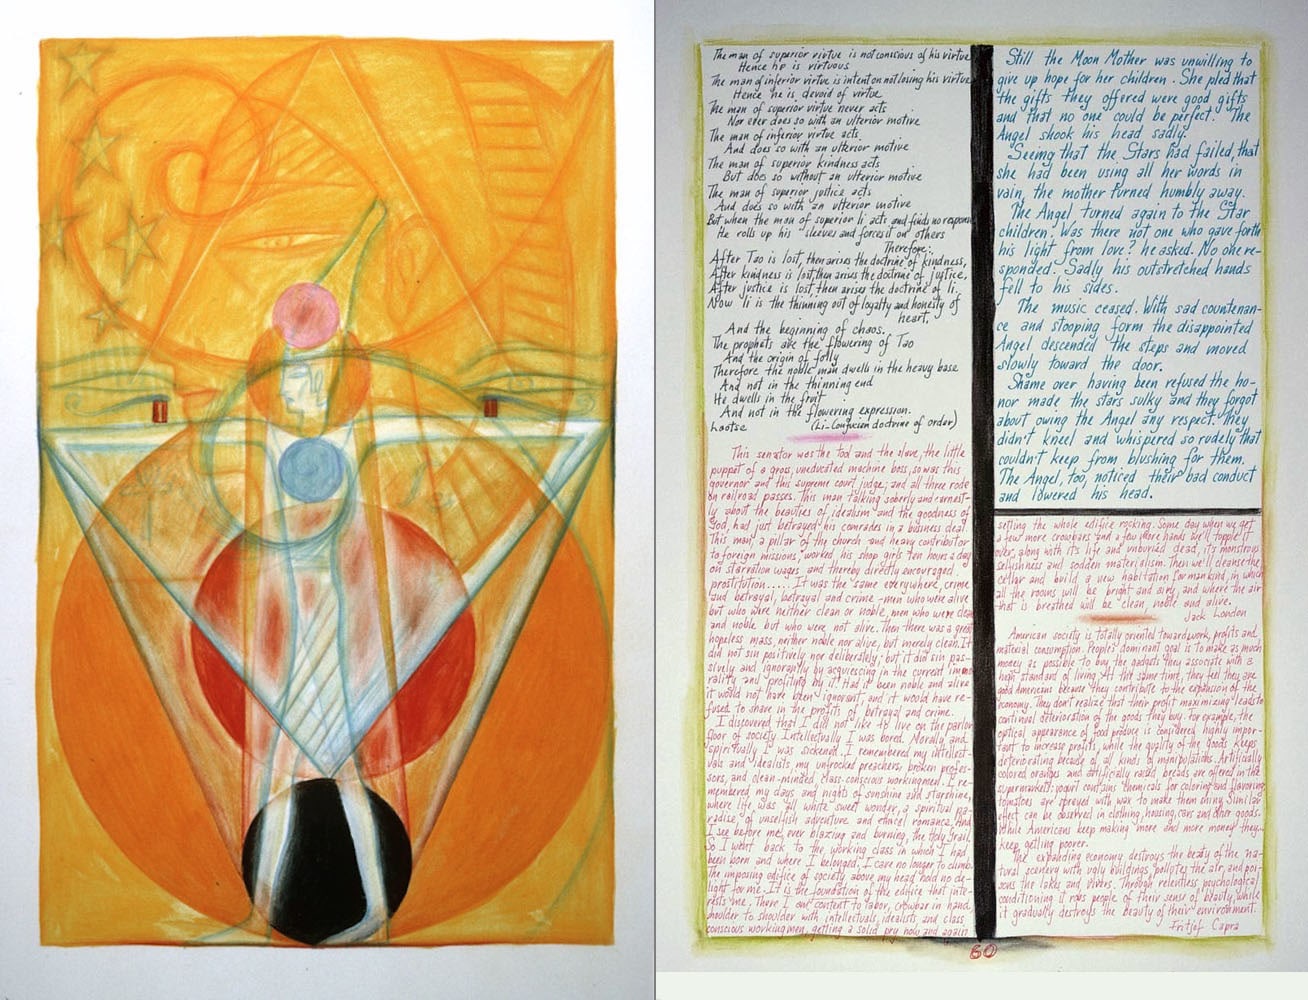 The man of superior virtue is not conscious of his virtue
Hence he is virtuous
The man of inferior virtue is intent on not losing his virtue
Hence he is devoid of virtue
The man of superior virtue never acts
Nor ever does so with an ulterior motive
The man of inferior virtue acts
And does so with an ulterior motive
The man of superior kindness acts
But does so without an ulterior motive
The man of superior justice acts
And does so with an ulterior motive
But when the man of superior li acts and finds no respons
He rolls up his sleeves and forces it on others
Therefore:
After Tao is lost, then arises the doctrine of kindness,
After kindness is lost, then arises the doctrine of justice,
After justice is lost then arises the doctrine of li.
Now li is the thinning out of loyalty and honesty of
heart,
And the beginning of chaos.
The prophets are the flowering of Tao
And the origin of folly
Therefore the noble man dwells in the heavy base
And not in the thinning end
He dwells in the fruit
And not in the flowering expression.
Laotse (Li-Confucian doctrine of order)
This senator was the tool and the slave, the little
puppet of a gross, uneducated machine boss, so was this
governor and this supreme court judge; and all three rode
on railroad passes. This man talking soberly and earnest-
ly about the beauties of idealism and the goodness of
God, had just betrayed his comrades in a business deal
This man, a pillar of the church and heavy contributor
to foreign missions, worked his shop girls ten hours a day
on starvation wages and thereby directly encouraged
prostitution...... It was the same everywhere, crime
and betrayal, betrayal and crime - men who were alive
but who were neither clean or noble, men who were clean
and noble but who were not alive. Then there was a great
hopeless mass, neither noble nor alive, but merely clean. It
did not sin positively nor deliberately; but it did sin pas-
sively and ignorantly by acquiescing in the current immo
rality and profiting by it. Had it been noble and alive
it would not have been ignorant, and it would have re-
fused to share in the profits of betrayal and crime.
I discovered that I did not like to live on the parlor
floor of society. Intellectually I was bored. Morally and
spiritually I was sickened. I remembered my intellect-
uals and idealists, my unfrocked preachers, broken profes-
sors, and clean-minded, class-conscious workingmen. I re-
membered my days and nights of sunshine and starshine,
where life was all white sweet wonder, a spiritual pa-
radise of unselfish adventure and ethical romance. And
I see before me, ever blazing and burning, the Holy Grail.
So I went back to the working class in which I had
been born and where I belonged. I care no longer to climb.
The imposing edifice of society above my head hold no de-
light for me. It is the foundation of the edifice that inte-
rests me. There I am content to labor, crowbar in hand
shoulder to shoulder with intellectuals, idealists and class
conscious workingmen, getting a solid pry now and again
Still the Moon Mother was unwilling to
give up hope for her children. She pled that
the gifts they offered were good gifts
and that no one could be perfect. The
Angel shook his head sadly.
Seeing that the Stars had failed, that
she had been using all her words in
vain, the mother turned humbly away.
The Angel turned again to the Star
children. Was there not one who gave forth
his light from love? he asked. No one re-
sponded. Sadly his outstretched hands
fell to his sides.
The music ceased. With sad countenan-
ce and stooping form the disappointed
Angel descended the steps and moved
slowly toward the door.
Shame over having been refused the ho-
nor made the stars sulky and they forgot
about owing the Angel any respect. They
didn't kneel and whispered so rudely that
couldn't keep from blushing for them.
The Angel, too, noticed their bad conduct
and lowered his head.
setting the whole edifice rocking. Some day when we get
a few more crowbars and a few more hands we'll topple it
over, along with its life and unburied dead, it's monstrous
selfishness and sodden materialism. Then we'll cleanse the
cellar and build a new habitation for mankind, in which
all the rooms will be bright and airy and where the air
that is breathed will be clean, noble and alive.
Jack London
American society is totally oriented toward work, profits and
material consumption. Peoples' dominant goal is to make as much
money as possible to buy the gadgets they associate with a
high standard of living. At this same time, they feel they are
good Americans because they contribute to the expansion of the
economy. They don't realize that their profit maximizing leads to
continual deterioration of the goods they buy. For example, the
optical appearance of food produce is considered highly impor-
tant to increase profits, while the quality of the goods keeps
deteriorating because of all kinds of manipulations. Artificially
colored oranges and artificially raised breads are offered in the
supermarkets; yogurt contains chemicals for coloring and flavoring
tomatoes are sprayed with wax to make them shiny. Similar
effect can be observed in clothing, housing, cars and other goods.
While Americans keep making more and more money they
keep getting poorer.
The expanding economy destroys the beauty of the na-
tural scenery with ugly buildings, pollutes the air, and poi-
sons the lakes and rivers. Through relentless psychological
conditioning it robs people of their sense of beauty, while
it gradually destroys the beauty of their environment.
Fritjof Capra
60